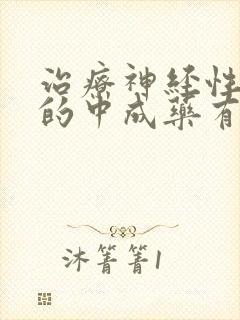 治療神经性
的中成藥有
沐箐箐1